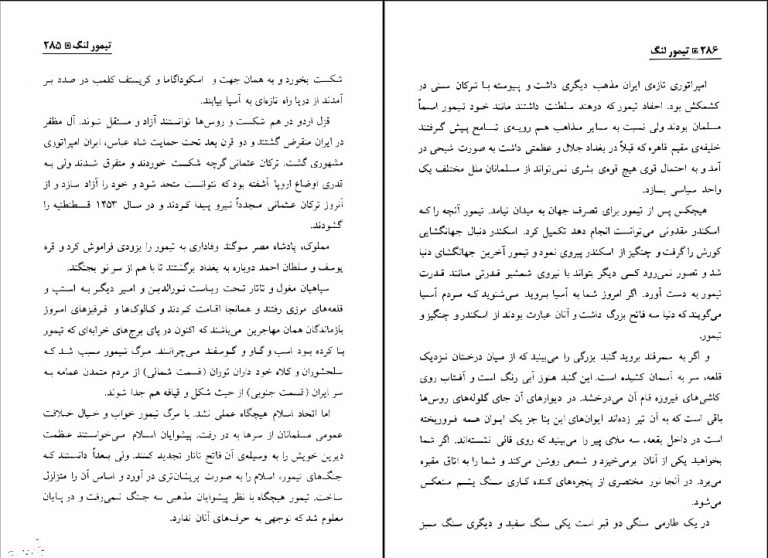 تیمور لنگ ۲۸۵
شکست بخورد و به همان جهت و اسکوداگاما و کریستف کلمب در صدد بر
آمدند از دریا راه تازه‌ای به آسیا بیابند.
قزل اردو در هم شکست و روس‌ها توانستند آزاد و مستقل شوند. آل مظفر
در ایران منقرض گشتند و دو قرن بعد تحت حمایت شاه عباس، ایران امپراتوری
مشهوری گشت. ترکان عثمانی گرچه شکست خوردند و متفرق شدند ولی به
قدری اوضاع اروپا آشفته بود که نتوانست متحد شود و خود را آزاد سازد و از
آنروز ترکان عثمانی مجدداً نیرو پیدا کردند و در سال ۱۴۵۳ قسطنطیه را
گشودند.
مملوک، پادشاه مصر سوگند وفاداری به تیمور را بزودی فراموش کرد و قره
یوسف و سلطان احمد دوباره به بغداد برگشتند تا با هم از سر نو بجنگند.
سپاهیان مغول و تاتار تحت ریاست نورالدین و امیر دیگر به استپ و
قلعه‌های مرزی رفتند و همانجا اقامت کردند و کالوک‌ها و قرقیزهای امروز
بازماندگان همان مهاجرین می‌باشند که اکنون در پای برج‌های خرابه‌ای که تیمور
بنا کرده بود اسب و گاو و گوسفند می‌چرانند. مرگ تیمور سبب شد که
سلحشوران و کلاه خود داران توران (قسمت شمالی) از مردم متمدن عمامه به
سر ایران (قسمت جنوبی) از حیث شکل و قیافه هم جدا شوند.
اما اتحاد اسلام هیچگاه عملی نشد. با مرگ تیمور خواب و خیال خلافت
عمومی مسلمانان از سرها به در رفت. پیشوایان اسلام می‌خواستند عظمت
دیرین خویش را به وسیله‌ی آن فاتح تاتار تجدید کنند. ولی بعداً دانستند که
جنگ‌های تیمور، اسلام را به صورت پریشان‌تری در آورد و اساس آن را متزلزل
ساخت. تیمور هیچگاه با نظر پیشوایان مذهبی به جنگ نمی‌رفت و در پایان
معلوم شد که توجهی به حرف‌های آنان ندارد.
۲۸۶ تیمور لنگ
امپراتوری تازه‌ی ایران مذهب دیگری داشت و پیوسته با ترکان سنی در
کشمکش بود. احفاد تیمور که درهند سلطنت داشتند مانند خود تیمور اسماً
مسلمان بودند ولی نسبت به سایر مذاهب هم رویه‌ی تامح پیش گرفتند
خلیفه‌ی مقیم قاهره که قبلاً در بغداد جلال و عظمتی داشت به صورت شبحی در
آمد و به احتمال قوی هیچ قوه‌ی بشری نمی‌تواند از مسلمانان ملل مختلف یک
واحد سیاسی بسازد.
هیچکس پس از تیمور برای تصرف جهان به میدان نیامد. تیمور آنچه را که
اسکندر مقدونی می‌توانست انجام دهد تکمیل کرد. اسکندر دنبال جهانگشایی
کورش را گرفت و چنگیز از اسکندر پیروی نمود و تیمور آخرین جهانگشای دنیا
شد و تصور نمی‌رود کسی دیگر بتواند با نیروی شمشیر قدرتی مانند قدرت
تیمور به دست آورد. اگر امروز شما به آسیا بروید می‌شنوید که مردم آسیا
می‌گویند که دنیا سه فاتح بزرگ داشت و آنان عبارت بودند از اسکندر و چنگیز و
تیمور.
و اگر به سمرقند بروید گنبد بزرگی را می‌بینید که از میان درختان نزدیک
قلعه، سر به آسمان کشیده است. این گنبد هنوز آبی رنگ است و آفتاب روی
کاشی‌های فیروزه فام آن می‌درخشد. در دیوارهای آن جای گلوله‌های روس‌ها
باقی است که به آن تیر زده‌اند ایوان‌های این بنا جز یک ایوان همه فروریخته
است در داخل بقعه، سه ملای پیر را می‌بینید که روی قالی نشسته‌اند. اگر شما
بخواهید یکی از آنان برمی‌خیزد و شمعی روشن می‌کند و شما را به اتاق مقبره
می‌برد. در آنجا نور مختصری از پنجره‌های کنده کاری سنگ یشم منعکس
می‌شود.
در یک طارمی سنگی دو قبر است یکی سنگ سفید و دیگری سنگ سبز